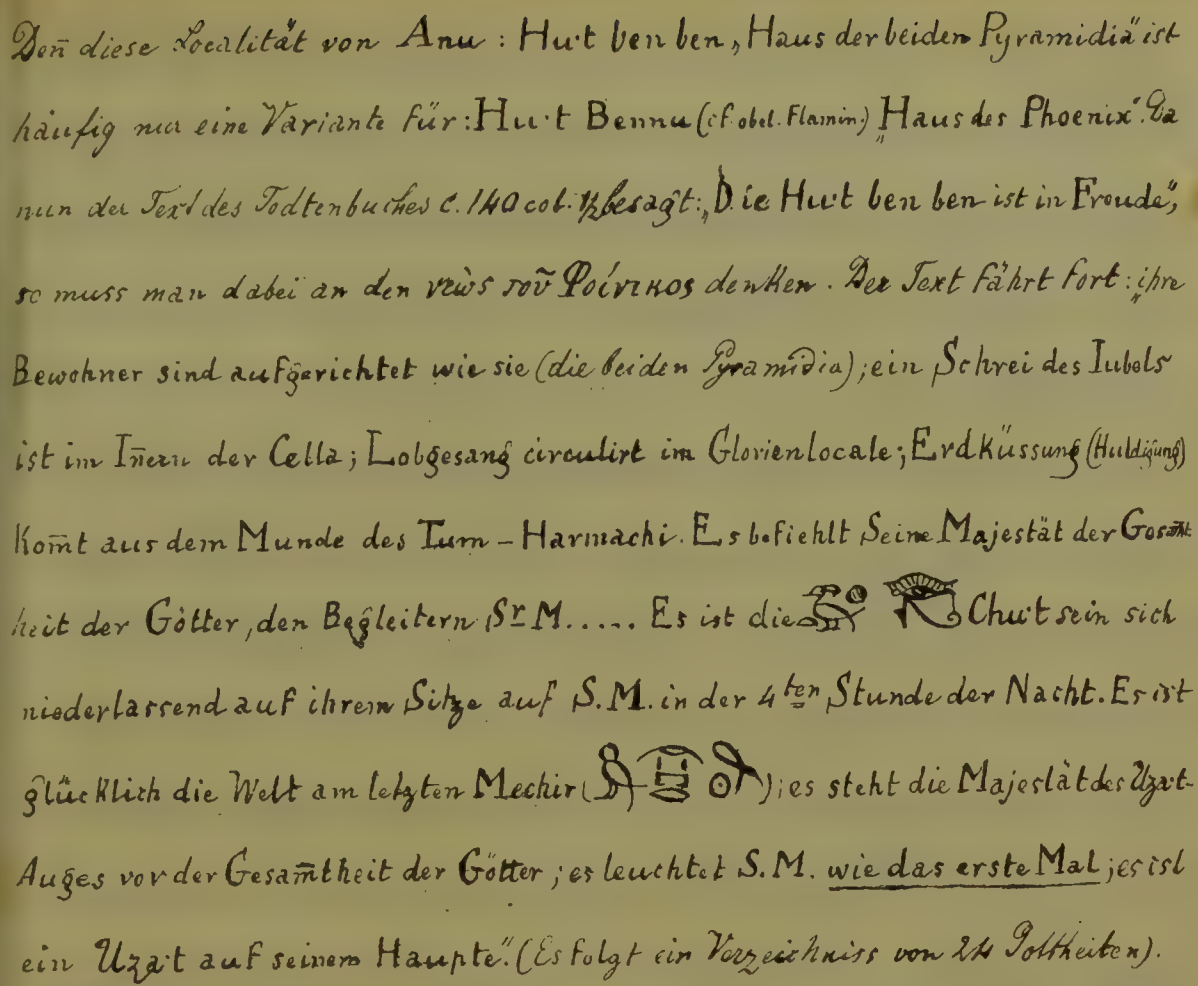 Den̄ diese Localität von Anu : Hu·t ben ben „Haus der beiden Pyramidia" ist
häufig nur eine Variante für: Hu·t Bennu (cf. obel. Flamin.) „Haus des Phoenix". Da
nun der Text des Todtenbuches c. 140 col. besagt: „Die Hu·t ben ben ist in Freude",
so muss man dabei an den νεὼς τοῦ Φοίνικος denken. Der Text fährt fort: „ihre
Bewohner sind aufgerichtet wie sie (die beiden Pyramidia); ein Schrei des Iubels
ist im Iñern der Cella; Lobgesang circulirt im Glorienlocale; Erdküssung (Huldigung)
kom̄t aus dem Munde des Tum – Harmachi. Es befiehlt Seine Majestät der Gesam̄t-
heit der Götter, den Begleitern Sr. M..... Es ist die 𓅜 𓂀 Chu·t sein sich
niederlassend auf ihrem Sitze auf S. M. in der 4ten Stunde der Nacht. Es ist
glücklich die Welt am letzten Mechir ( ); es steht die Majestät des Uza·t-
Auges vor der Gesam̄theit der Götter; es leuchtet S. M. wie das erste Mal; es ist
ein Uza·t auf seinem Haupte." (Es folgt ein Verzeichniss von 24 Gottheiten).